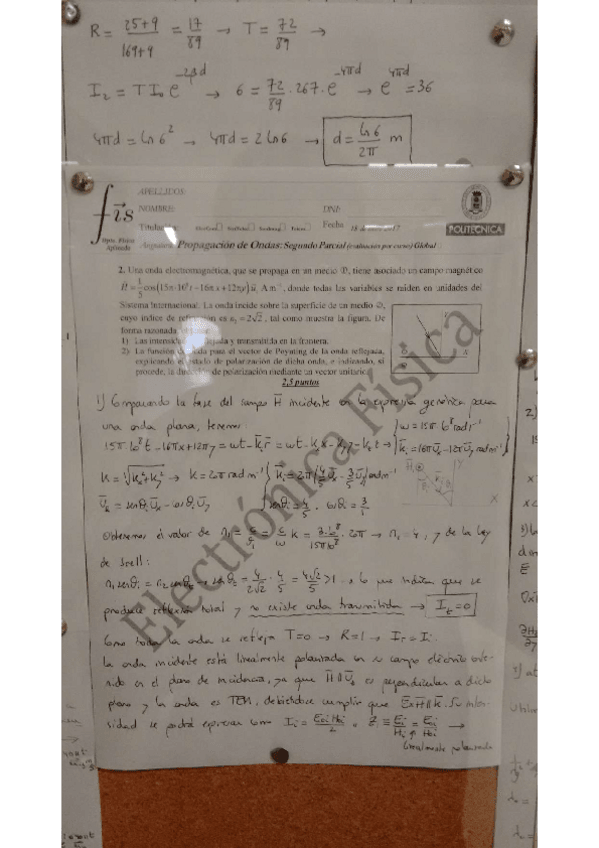 R = (25+9)/(169+9) = 17/89 → T = 72/89 →
I₂ = T I₀ e^(-2βd) → 6 = 72/89 · 267 · e^(-4πd) → e^(4πd) = 36
4πd = Ln 6² → 4πd = 2 Ln 6 → d = Ln 6/2π m
fis
Dpto. Física
Aplicada
APELLIDOS:
NOMBRE: DNI:
Titulación: Fecha
POLITÉCNICA
Asignatura: Propagación de Ondas: Segundo Parcial (evaluación por curso) Global
2. Una onda electromagnética, que se propaga en un medio ①, tiene asociado un campo magnético
cos(15π·10⁸t −16πx+12πy) A m⁻¹, donde todas las variables se miden en unidades del
Sistema Internacional. La onda incide sobre la superficie de un medio ②,
cuyo índice de refracción es n₂ = 2√2, tal como muestra la figura. De
forma razonada
1) Las intensidades reflejada y transmitida en la frontera.
2) La función de onda para el vector de Poynting de la onda reflejada,
explicando el estado de polarización de dicha onda, e indicando, si
procede, la dirección de polarización mediante un vector unitario.
2,5 puntos
1) Comparando la fase del campo H incidente con la expresión genérica para
una onda plana, tenemos
15π10⁸t −16πx+12πy = ωt − k⃗ᵢ r⃗ = ωt − kₓx − k_y y − k_z z → { ω = 15π10⁸ rad s⁻¹
k⃗ᵢ = 16πu⃗ₓ − 12πu⃗_y rad m⁻¹
k = √(kₓ²+k_y²) → k = 20π rad m⁻¹
senθᵢ = 4/5 , cosθᵢ = 3/5
Obtenemos el valor de n₁ = c/v₁ = c/ω k = 3·10⁸/15π10⁸ · 20π → n₁ = 4, y de la ley
de Snell:
n₁ senθᵢ = n₂ senθ₂ → senθ₂ = 4/2√2 · 4/5 = 4√2/5 > 1 → lo que indica que se
produce reflexión total y no existe onda transmitida → Iₜ = 0
Como toda la onda se refleja T=0 → R=1 → Iᵣ = Iᵢ
La onda incidente está linealmente polarizada con su campo eléctrico
en el plano de incidencia, ya que es perpendicular a dicho
plano y la onda es TEM, debiéndose cumplir que Su inten-
sidad se podrá expresar como Iᵢ = E₀ᵢH₀ᵢ/2 Z = Eᵢ/Hᵢ = E₀ᵢ/H₀ᵢ →
linealmente polarizada
Electrónica Física